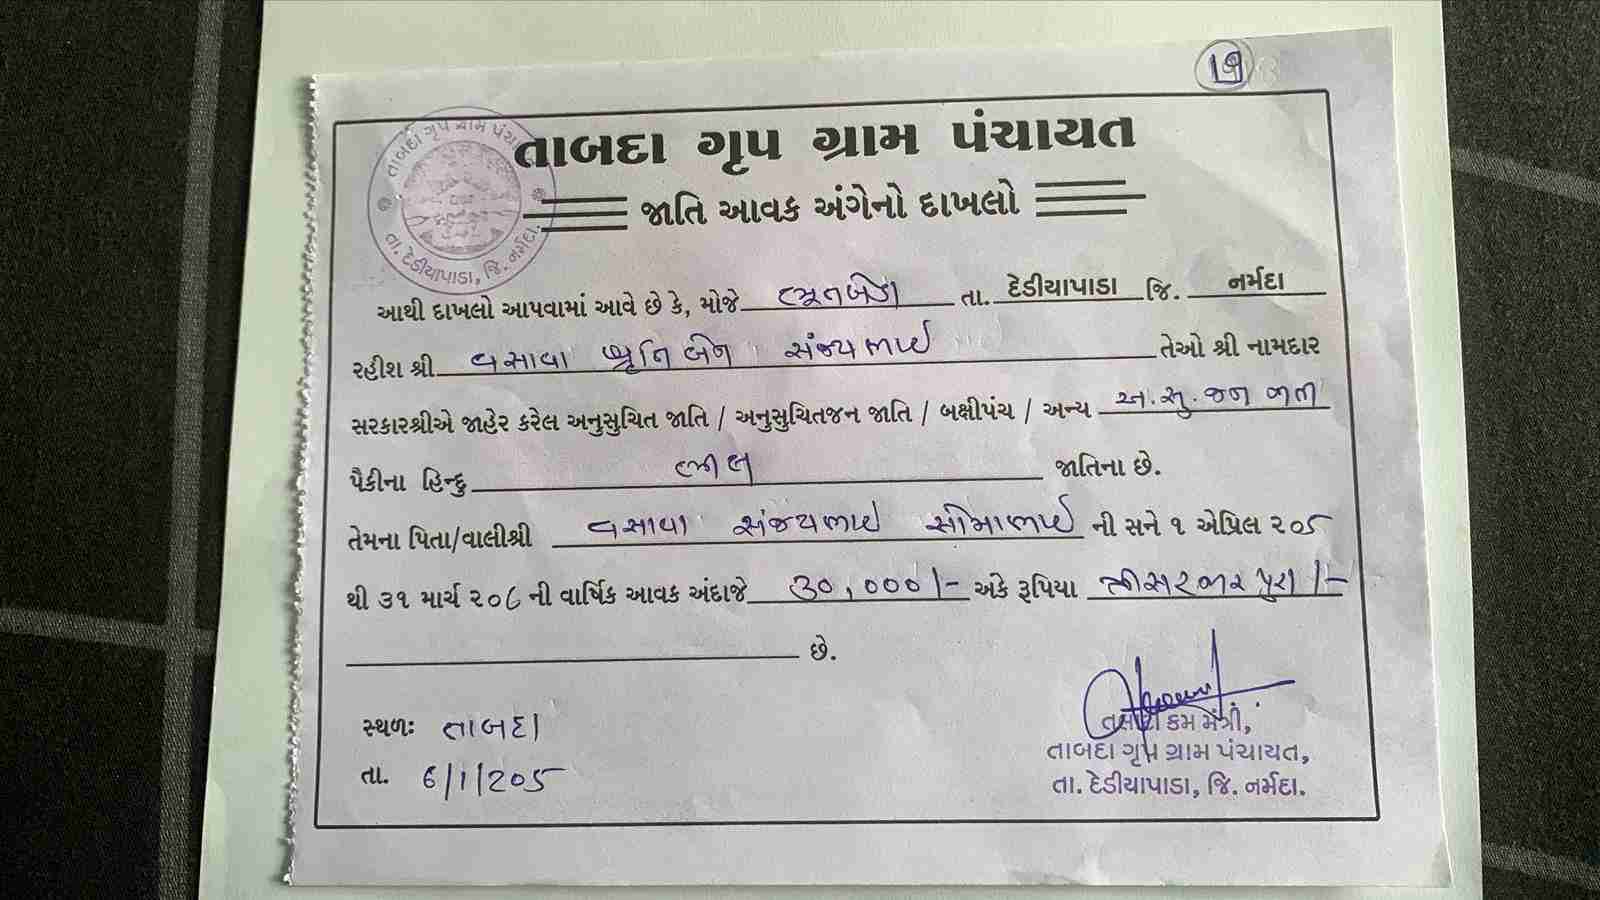 ૧૭
તાબદા ગૃપ ગ્રામ પંચાયત
જાતિ આવક અંગેનો દાખલો
તાબદા ગૃપ ગ્રામ પંચાયત
તા. દેડીયાપાડા, જિ. નર્મદા.
આથી દાખલો આપવામાં આવે છે કે, મોજે ભૂતબેડા તા. દેડીયાપાડા જિ. નર્મદા
રહીશ શ્રી વસાવા ધ્રુતિબેન સંજયભાઇ તેઓ શ્રી નામદાર
સરકારશ્રીએ જાહેર કરેલ અનુસુચિત જાતિ / અનુસુચિતજન જાતિ / બક્ષીપંચ / અન્ય અ.સુ.જન જાતી
પૈકીના હિન્દુ ભીલ જાતિના છે.
તેમના પિતા/વાલીશ્રી વસાવા સંજયભાઇ સોમાભાઇ ની સને ૧ એપ્રિલ ૨૦૫
થી ૩૧ માર્ચ ૨૦૬ ની વાર્ષિક આવક અંદાજે ૩૦,૦૦૦/- અંકે રૂપિયા ત્રીસ હજાર પુરા/-
છે.
સ્થળઃ તાબદા
તા. ૬/૧/૨૦૫
તલાટી કમ મંત્રી,
તાબદા ગૃપ ગ્રામ પંચાયત,
તા. દેડીયાપાડા, જિ. નર્મદા.